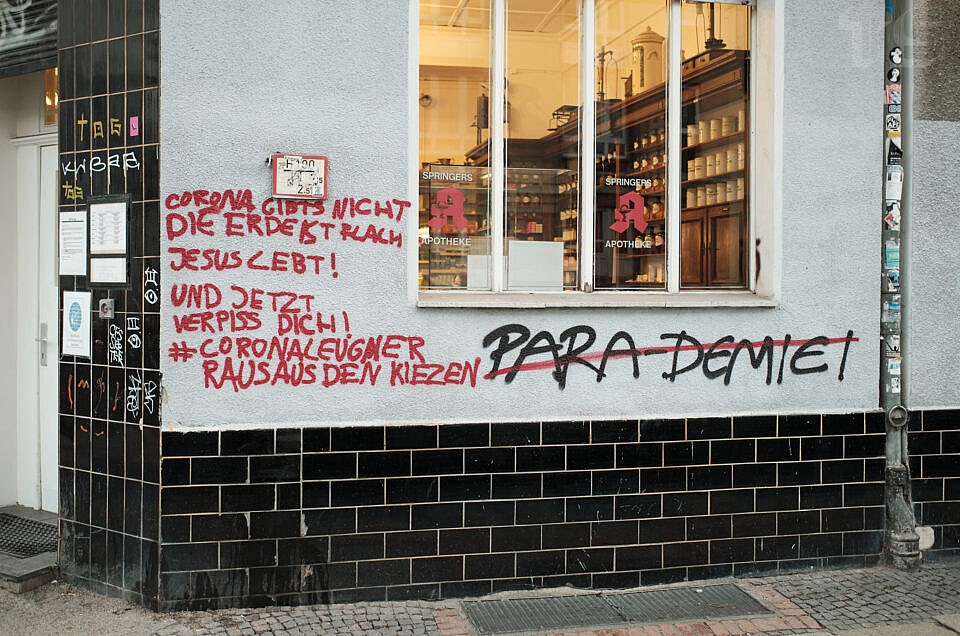 TAG
TAG
H100
SPRINGERS
APOTHEKE
SPRINGERS
APOTHEKE
CORONA GIBTS NICHT
DIE ERDE IST FLACH
JESUS LEBT!
UND JETZT
VERPISS DICH!
#CORONALEUGNER
RAUS AUS DEN KIEZEN
PARA-DEMIE!